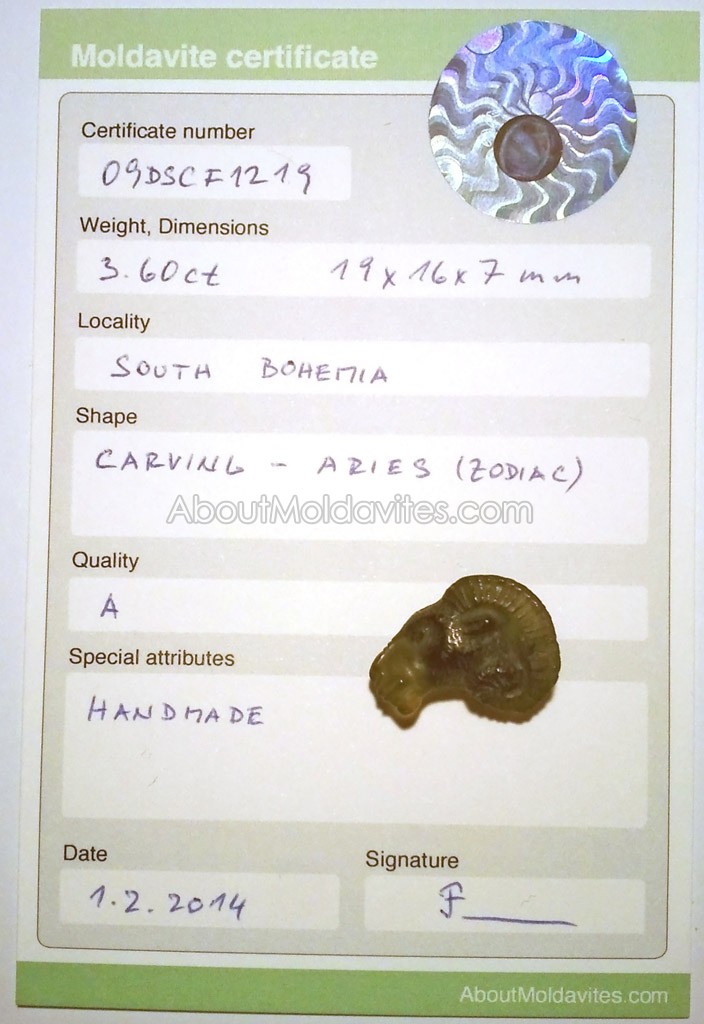 Moldavite certificate
Certificate number
09DSCF1219
Weight, Dimensions
3.60ct 19x16x7mm
Locality
SOUTH BOHEMIA
Shape
CARVING - ARIES (ZODIAC)
AboutMoldavites.com
Quality
A
Special attributes
HANDMADE
Date Signature
1.2.2014 F
AboutMoldavites.com